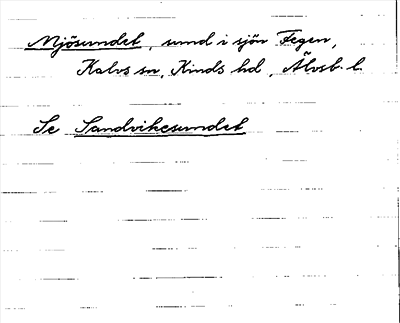 Mjösundet, sund i sjön Fegen,
Kalvs sn, Kinds hd, Älvsb. l.
Se Sandvikesundet